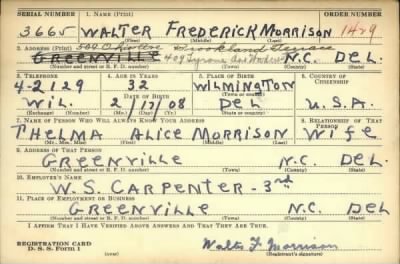 SERIAL NUMBER 1. NAME (Print) ORDER NUMBER
3665 WALTER FREDERICK MORRISON 1429
(First) (Middle) (Last)
2. ADDRESS (Print)
GREENVILLE N.C. DEL.
(Number and street or R. F. D. number) (Town) (County) (State)
3. TELEPHONE 4. AGE IN YEARS 5. PLACE OF BIRTH 6. COUNTRY OF CITIZENSHIP
4-2129 32 WILMINGTON
DATE OF BIRTH (Town or county)
WIL. 2/17/08 DEL U.S.A.
(Exchange) (Number) (Mo.) (Day) (Yr.) (State or country)
7. NAME OF PERSON WHO WILL ALWAYS KNOW YOUR ADDRESS 8. RELATIONSHIP OF THAT PERSON
THELMA ALICE MORRISON WIFE
(Mr., Mrs., Miss) (First) (Middle) (Last)
9. ADDRESS OF THAT PERSON
GREENVILLE N.C. DEL.
(Number and street or R. F. D. number) (Town) (County) (State)
10. EMPLOYER'S NAME
W.S. CARPENTER - 3rd
11. PLACE OF EMPLOYMENT OR BUSINESS
GREENVILLE N.C. DEL.
(Number and street or R. F. D. number) (Town) (County) (State)
I AFFIRM THAT I HAVE VERIFIED ABOVE ANSWERS AND THAT THEY ARE TRUE.
REGISTRATION CARD
D. S. S. FORM 1
Walter F. Morrison
(Registrant's signature)